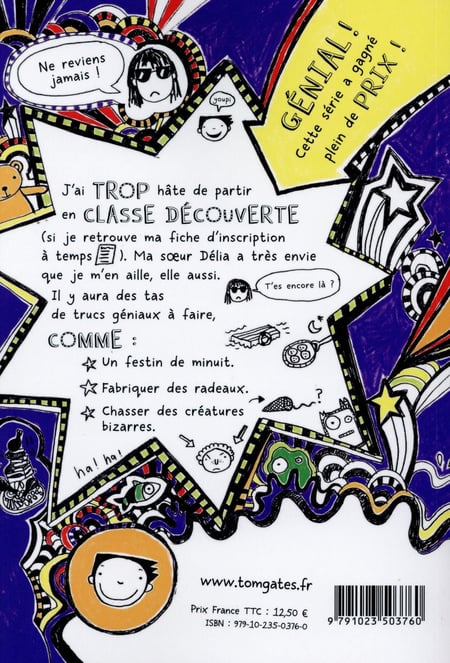 Ne reviens
jamais !
youpi
GÉNIAL !
Cette série a gagné
plein de PRIX !
J'ai TROP hâte de partir
en CLASSE DÉCOUVERTE
(si je retrouve ma fiche d'inscription
à temps ). Ma sœur Délia a très envie
que je m'en aille, elle aussi.
T'es encore là ?
Il y aura des tas
de trucs géniaux à faire,
COMME :
Un festin de minuit.
Fabriquer des radeaux.
Chasser des créatures
bizarres.
?
ha! ha!
www.tomgates.fr
Prix France TTC : 12,50 €
ISBN : 979-10-235-0376-0
9 791023 503760